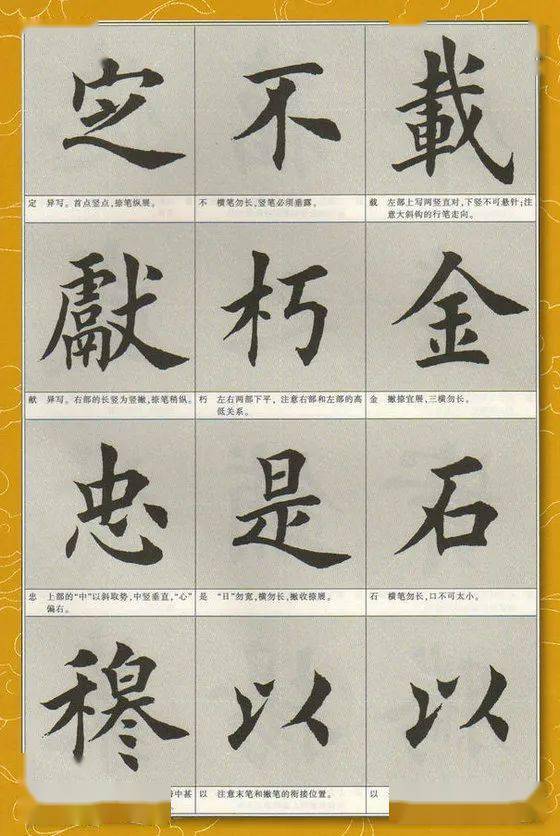 定 不 載
定 异写。首点竖点,捺笔纵展。
不 横笔勿长,竖笔必须垂露。
载 左部上写两竖直对,下竖不可悬针;注
意大斜钩的行笔走向。
獻 朽 金
献 异写。右部的长竖为竖撇,捺笔稍纵。
朽 左右两部下平,注意右部和左部的高
低关系。
金 撇捺宜展,三横勿长。
忠 是 石
忠 上部的“中”以斜取势,中竖垂直,“心”
偏右。
是 “日”勿宽,横勿长,撇收捺展。
石 横笔勿长,口不可太小。
穆 以 以
中甚
以 注意末笔和撇笔的衔接位置。
以